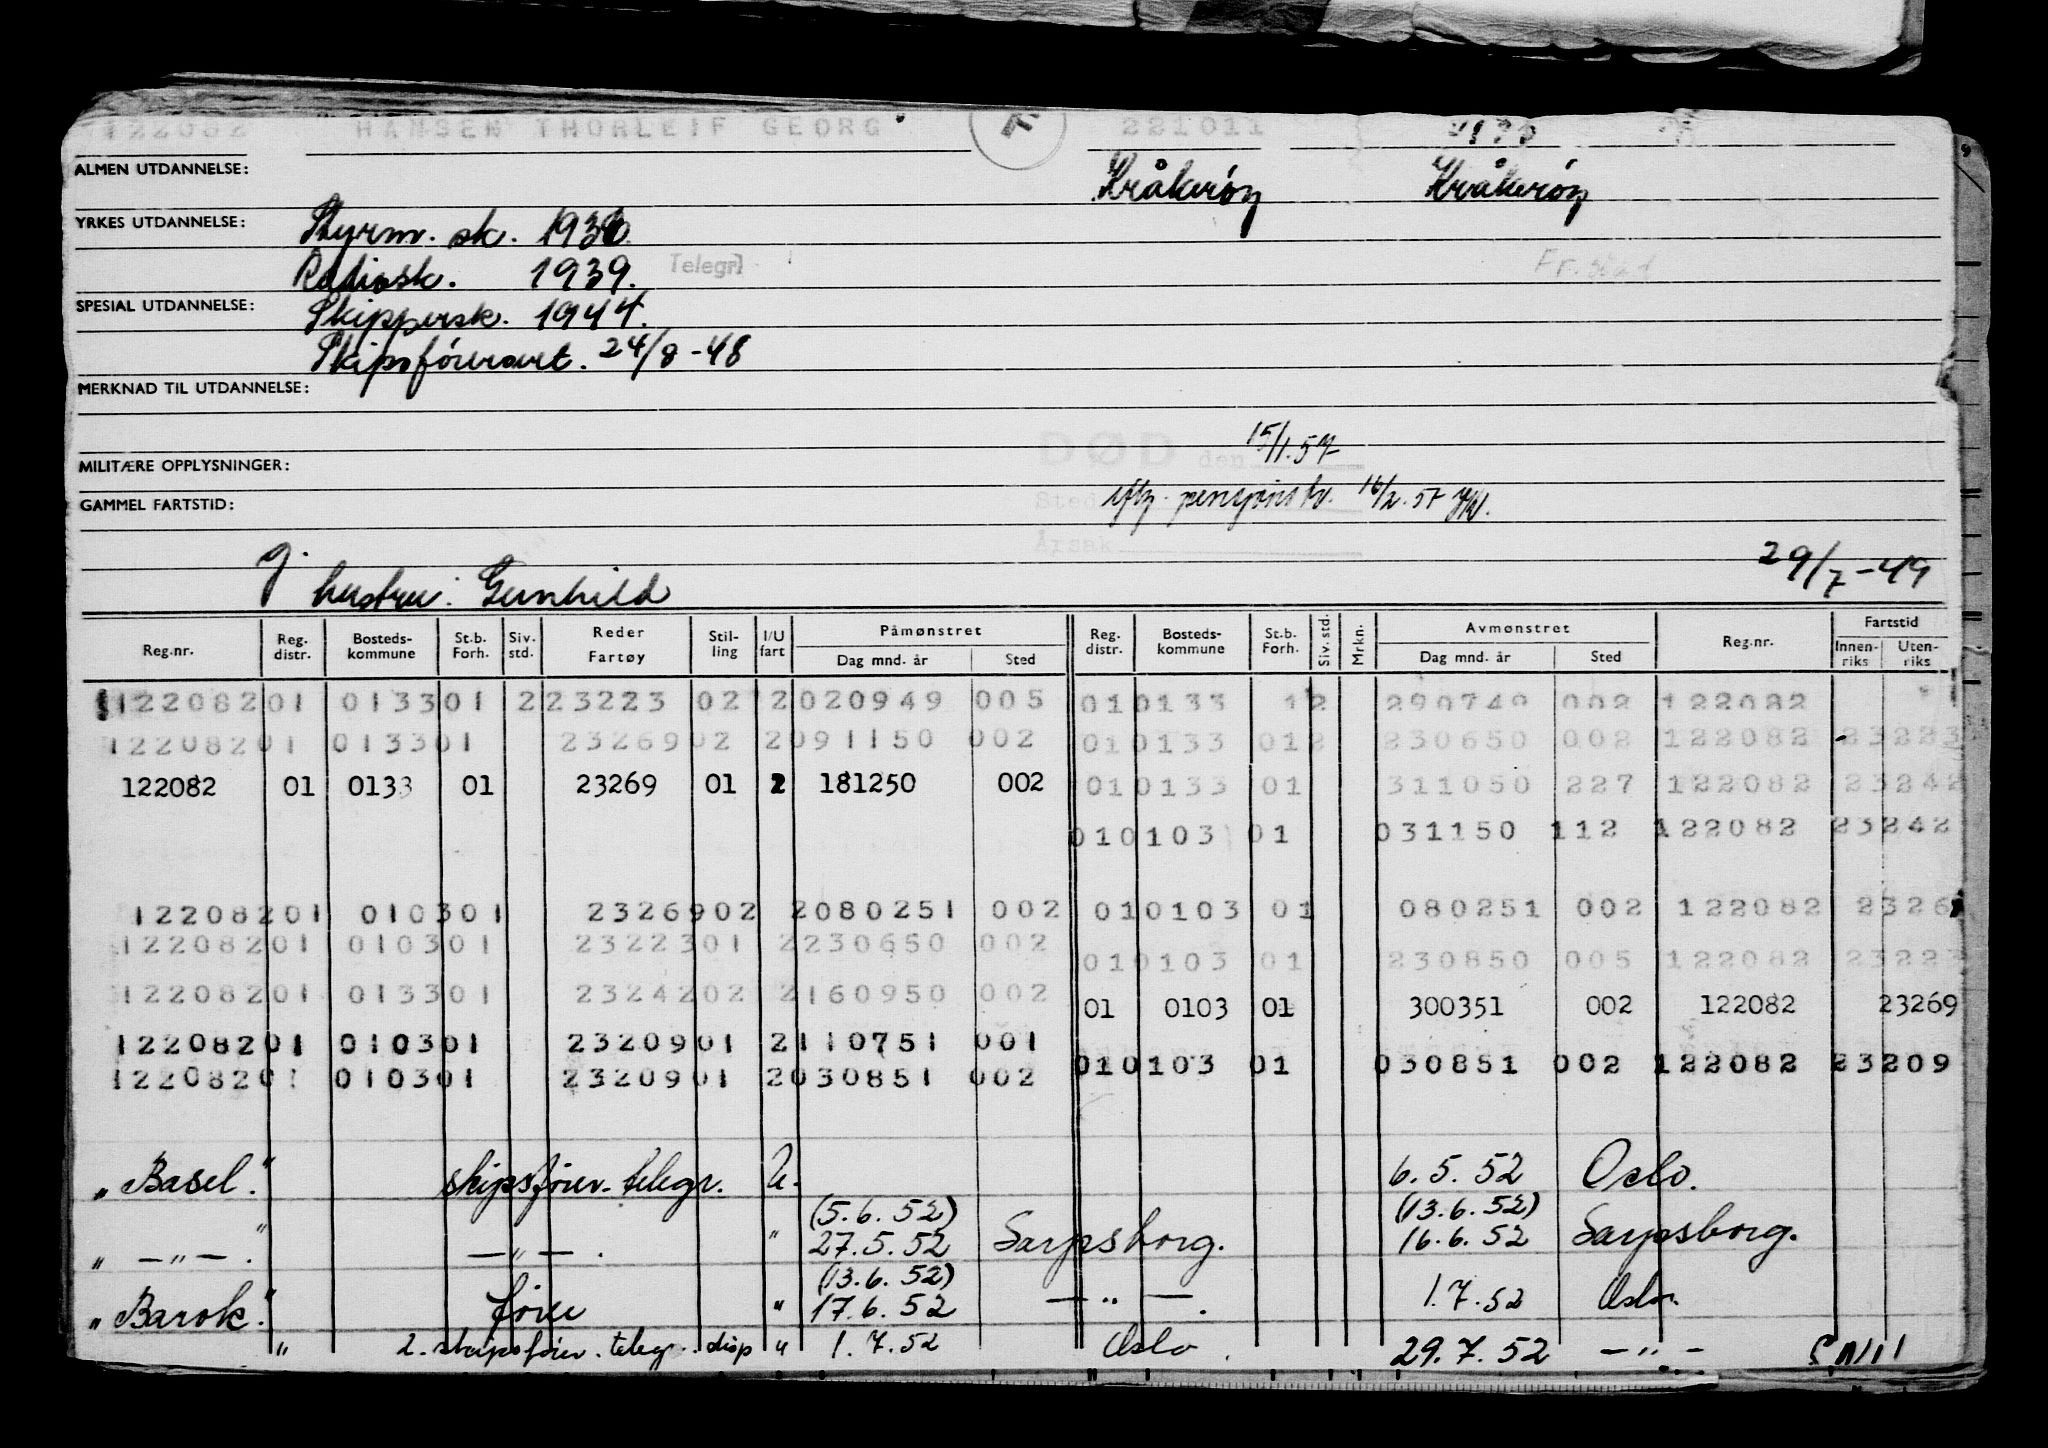 122082 HANSEN THORLEIF GEORG 221011
ALMEN UTDANNELSE: Kråkerøy Kråkerøy
YRKES UTDANNELSE: Styrm. sk. 1930.
Radiosk. 1939. Telegr. Fr.stad
SPESIAL UTDANNELSE: Skippersk. 1944.
Skipsførercert. 24/8-48
MERKNAD TIL UTDANNELSE:
DØD den 15/1.57
MILITÆRE OPPLYSNINGER:
GAMMEL FARTSTID: Sted pensjonstr. 16/2.57
Årsak
g. hustru: Gunhild 29/7-49
Reg.nr. Reg. distr. Bosteds- kommune St.b. Forh. Siv. std. Reder Fartøy Stil- ling I/U fart Påmønstret Dag mnd. år Sted Reg. distr. Bosteds- kommune St.b. Forh. Siv. std. Mrkn. Avmønstret Dag mnd. år Sted Reg.nr. Fartstid Innen- riks Uten- riks
122082 01 0133 01 2 23223 02 2 020949 005 01 0133 1 2 290749 002 122082
122082 01 0133 01 23269 02 2 091150 002 01 0133 01 2 230650 002 122082 23223
122082 01 0133 01 23269 01 2 181250 002 01 0133 01 311050 227 122082 23242
01 0103 01 031150 112 122082 23242
122082 01 0103 01 23269 02 2 080251 002 01 0103 01 080251 002 122082 2326
122082 01 0103 01 23223 01 2 230650 002 01 0103 01 230850 005 122082 23223
122082 01 0133 01 23242 02 2 160950 002 01 0103 01 300351 002 122082 23269
122082 01 0103 01 23209 01 2 110751 001 01 0103 01 030851 002 122082 23209
122082 01 0103 01 23209 01 2 030851 002
"Basel." skipsfører-telegr. U. 6.5.52 Oslo.
(5.6.52) (13.6.52)
" —"— ." —"— . " 27.5.52 Sarpsborg. 16.6.52 Sarpsborg.
(13.6.52)
"Barok." fører " 17.6.52 —"—. 1.7.52 Oslo.
" 2. skipsfører. telegr. disp " 1.7.52 Oslo. 29.7.52 —"—